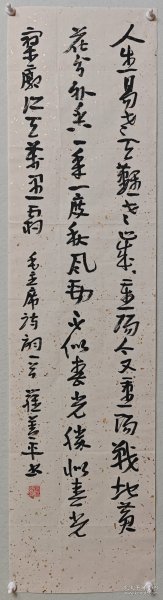 人生易老天难老岁岁重阳今又重阳战地黄
花分外香一年一度秋风劲不似春光胜似春光
寥廓江天万里霜 毛主席诗词一首 苏善平书